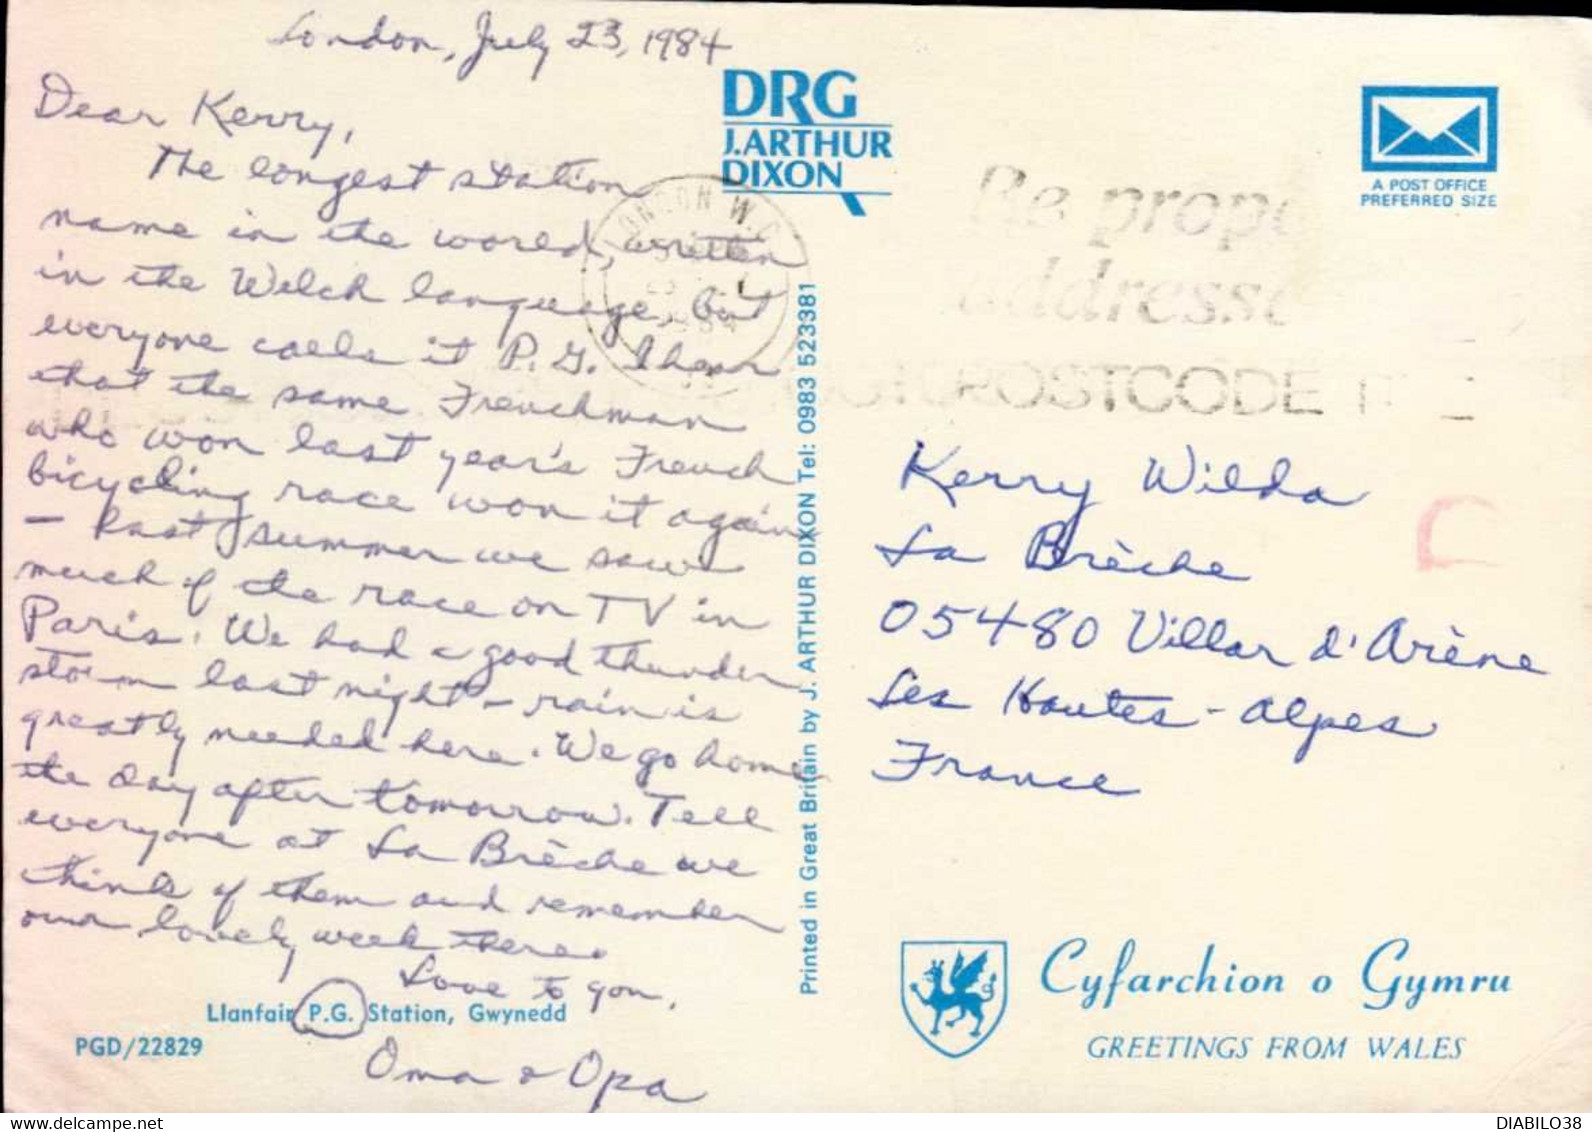 London, July 23, 1984
Dear Kerry,
The longest station
name in the world, written
in the Welch language, but
everyone calls it P.G. I hear
that the same Frenchman
who won last year's French
bicycling race won it again
- Last summer we saw
much of the race on TV in
Paris. We had a good thunder
storm last night - rain is
greatly needed here. We go home
the day after tomorrow. Tell
everyone at La Brèche we
think of them and remember
our lovely week there.
Love to you,
Oma & Opa
Llanfair P.G. Station, Gwynedd
PGD/22829
DRG
J.ARTHUR
DIXON
LONDON W.C
1984
Be prope
addresse
POSTCODE
A POST OFFICE
PREFERRED SIZE
Printed in Great Britain by J. ARTHUR DIXON Tel: 0983 523381
Kerry Wilda
La Brèche
05480 Villar d'Arène
Les Hautes-Alpes
France
Cyfarchion o Gymru
GREETINGS FROM WALES
delcampe.net
DIABILO38